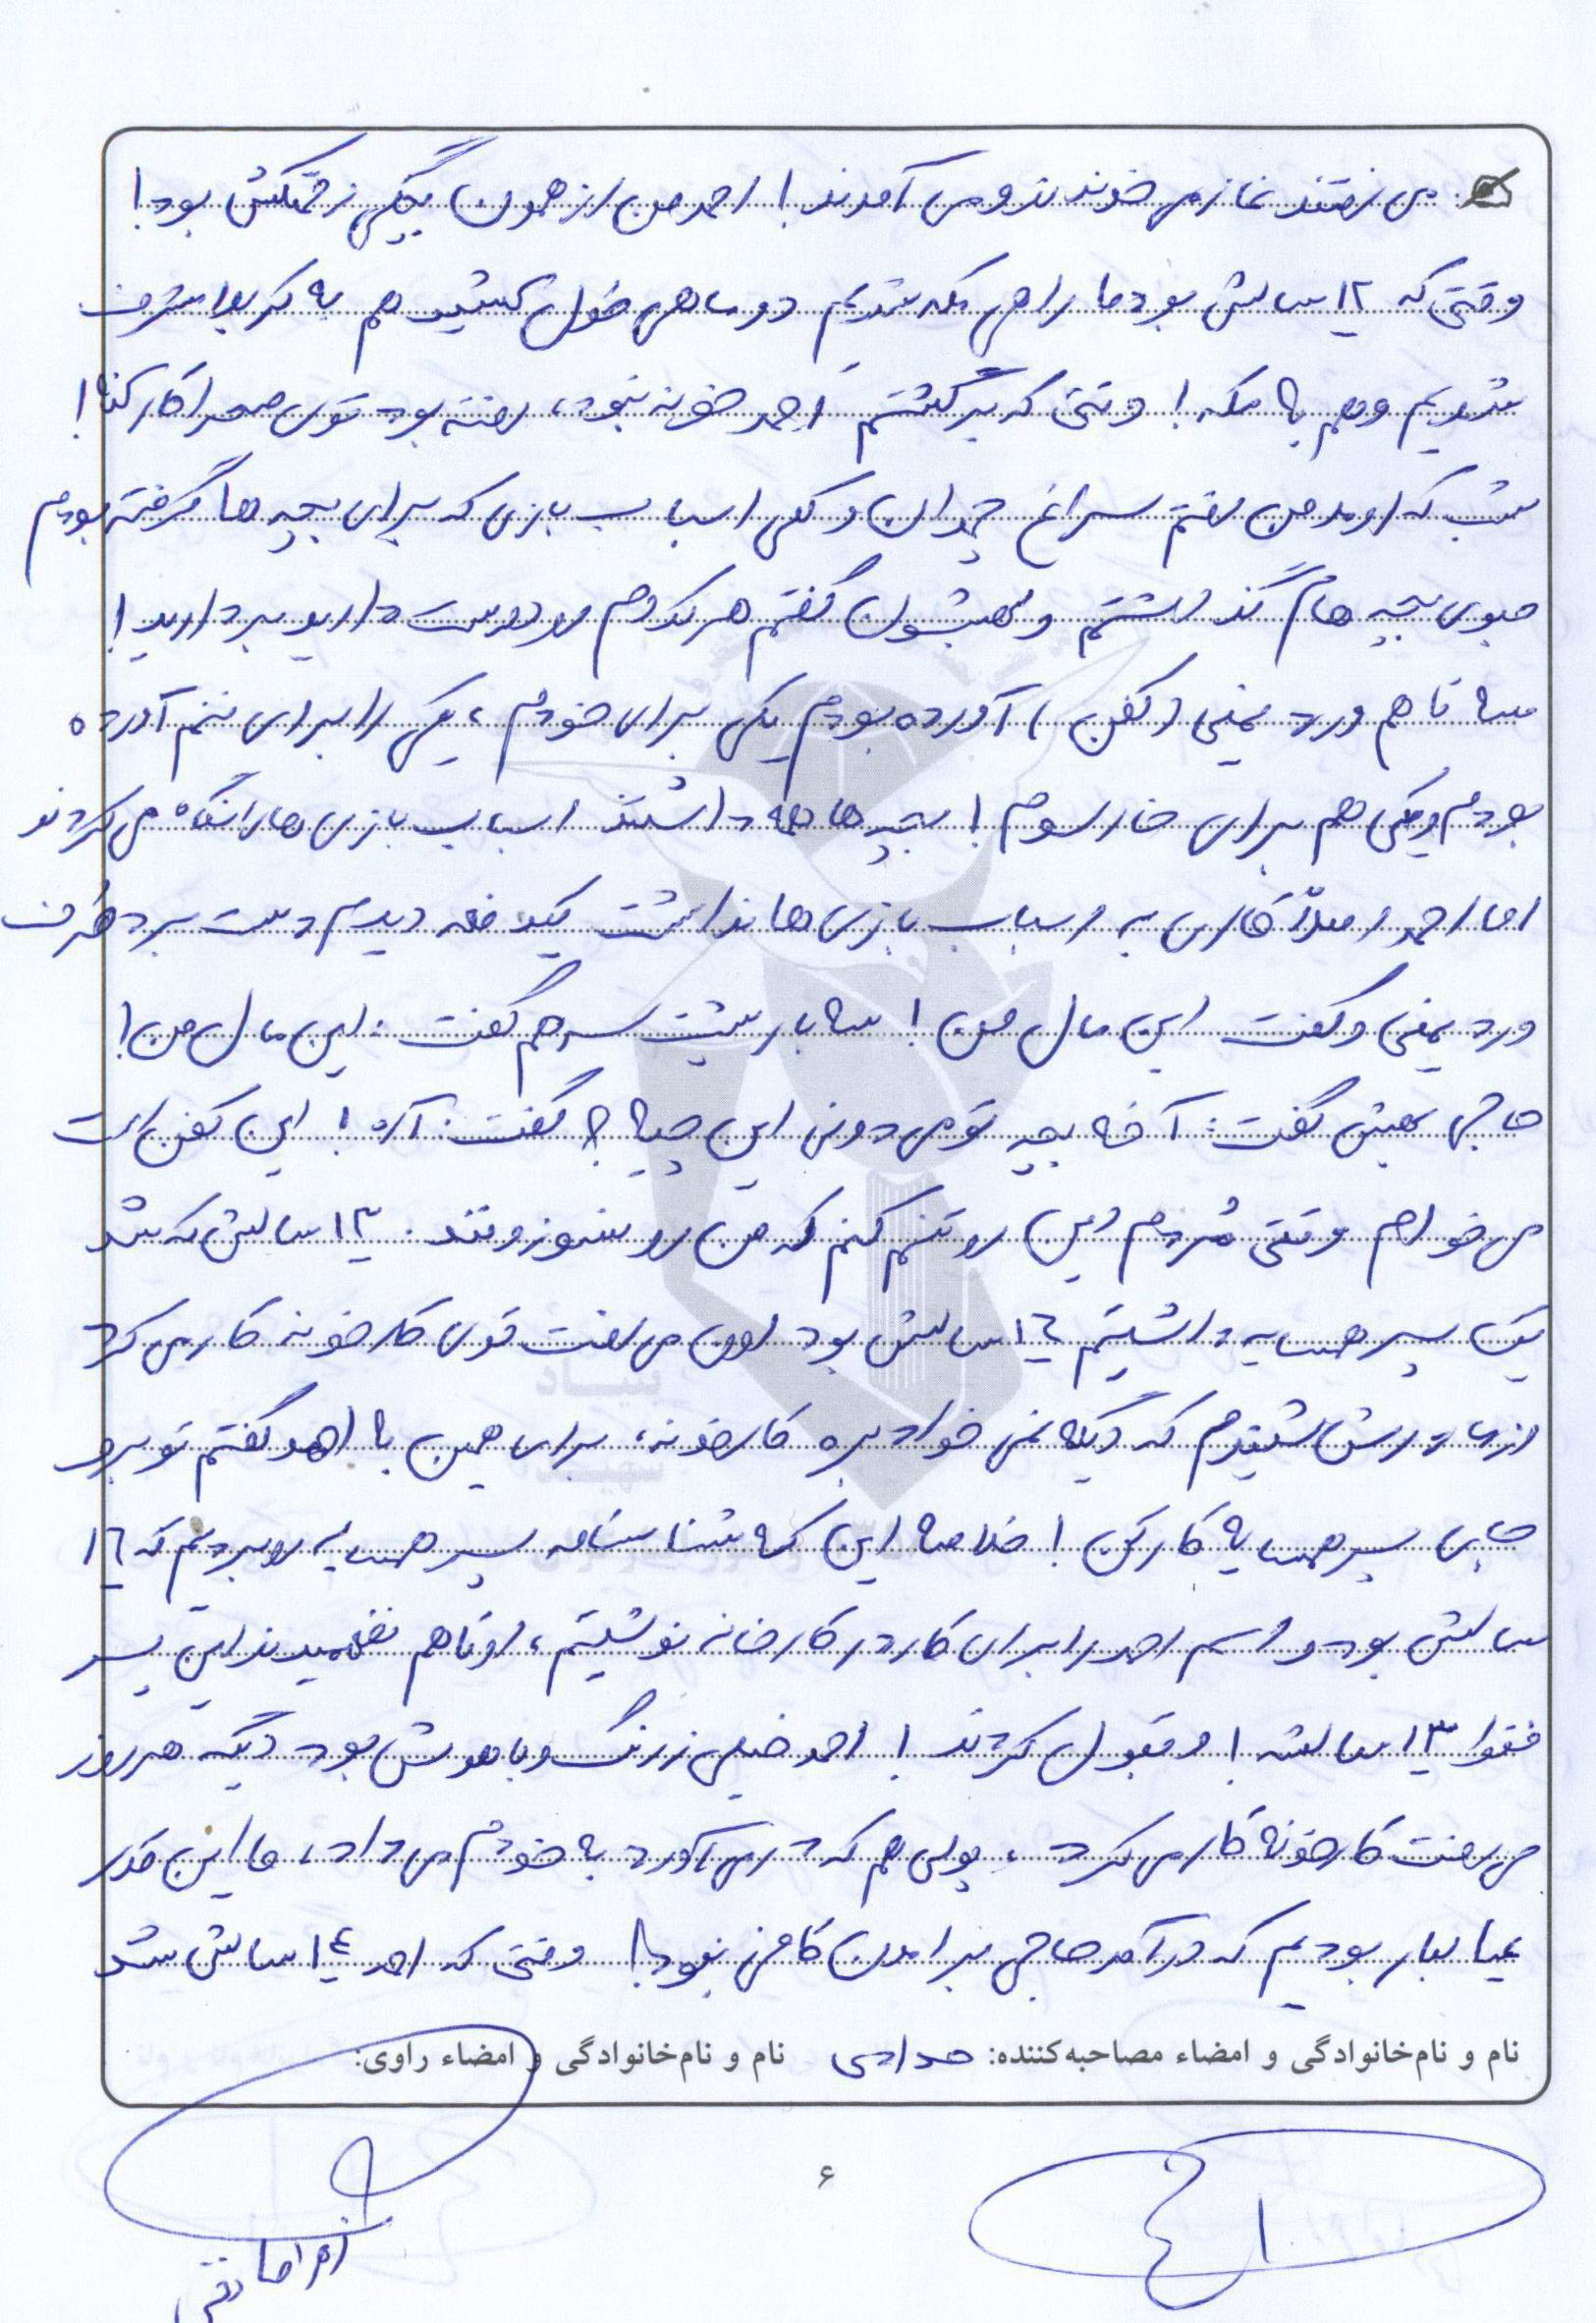 می رفتند نماز می خوندند و می آمدند! احمد من از همون بچگی زحمتکش بود!
وقتی که ۱۲ سالش بود ما راهی مکه شدیم دو ماهی طول کشید هم به کربلا مشرف
شدیم و هم به مکه! وقتی که برگشتم احمد خونه نبود، رفته بود توی صحرا کار کنه!
شب که اومد من رفتم سراغ چمدان و کلی اسباب بازی که برای بچه ها گرفته بودم
جلوی بچه هام گذاشتم و بهشون گفتم هر کدوم رو دوست دارید بردارید!
سه تا هم ورد یمنی (کفن) آورده بودم یکی برای خودم، یکی را برای ننم آورده
بودم و یکی هم برای خارسوم! بچه ها همه داشتند اسباب بازی ها را نگاه می کردند
اما احمد اصلاً کاری به اسباب بازی ها نداشت یکدفعه دیدم دست برد طرف
ورد یمنی و گفت این مال من! سه بار پشت سر هم گفت: این مال من!
حاجی بهش گفت: آخه بچه تو می دونی این چیه؟ گفت: آره! این کفن است
می خوام وقتی مُردم این رو تنم کنم که من رو نسوزونند. ۱۳ سالش که شد
یک پسر همسایه داشتیم ۱۶ سالش بود اون می رفت توی کارخونه کار می کرد
از مادرش شنیدم که دیگه نمی خواد بره کارخونه، برای همین به احمد گفتم تو برو
جای پسر همسایه کار کن! خلاصه این که شناسنامه پسر همسایه رو بردیم که ۱۶
سالش بود و اسم احمد را برای کار در کارخانه نوشتیم، اونا هم نفهمیدند این پسر
فقط ۱۳ سالشه! و قبول کردند! احمد خیلی زرنگ و باهوش بود دیگه هر روز
می رفت کارخونه کار می کرد، پولی هم که در می آورد به خودم می داد، ما این قدر
عیالبار بودیم که درآمد حاجی برامون کافی نبود! وقتی که احمد ۱۴ سالش شد
نام و نام‌خانوادگی و امضاء مصاحبه‌کننده: نام و نام‌خانوادگی و امضاء راوی:
۶